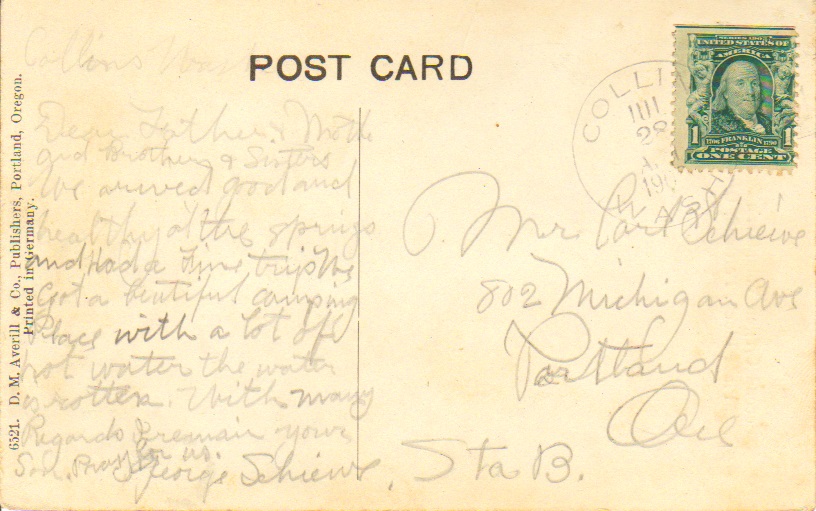 Collins
POST CARD
Dear Father & Moth
and Brothers & Sisters
We arrived good and
healthy at the springs
and had a fine trip We
Got a beautiful camping
Place with a lot of
hot water the water
is rotten. With many
Regards I remain your
Son. Pray for us.
George Schieve.
6521. D. M. Averill & Co., Publishers, Portland, Oregon.
Printed in Germany.
COLLIN
28
190
WASH
SERIES 1902
UNITED STATES OF
AMERICA
1 1
1706 FRANKLIN 1790
POSTAGE
ONE CENT
Mr. Carl Schieve
802 Michigan Ave
Portland
Ore
Sta B.